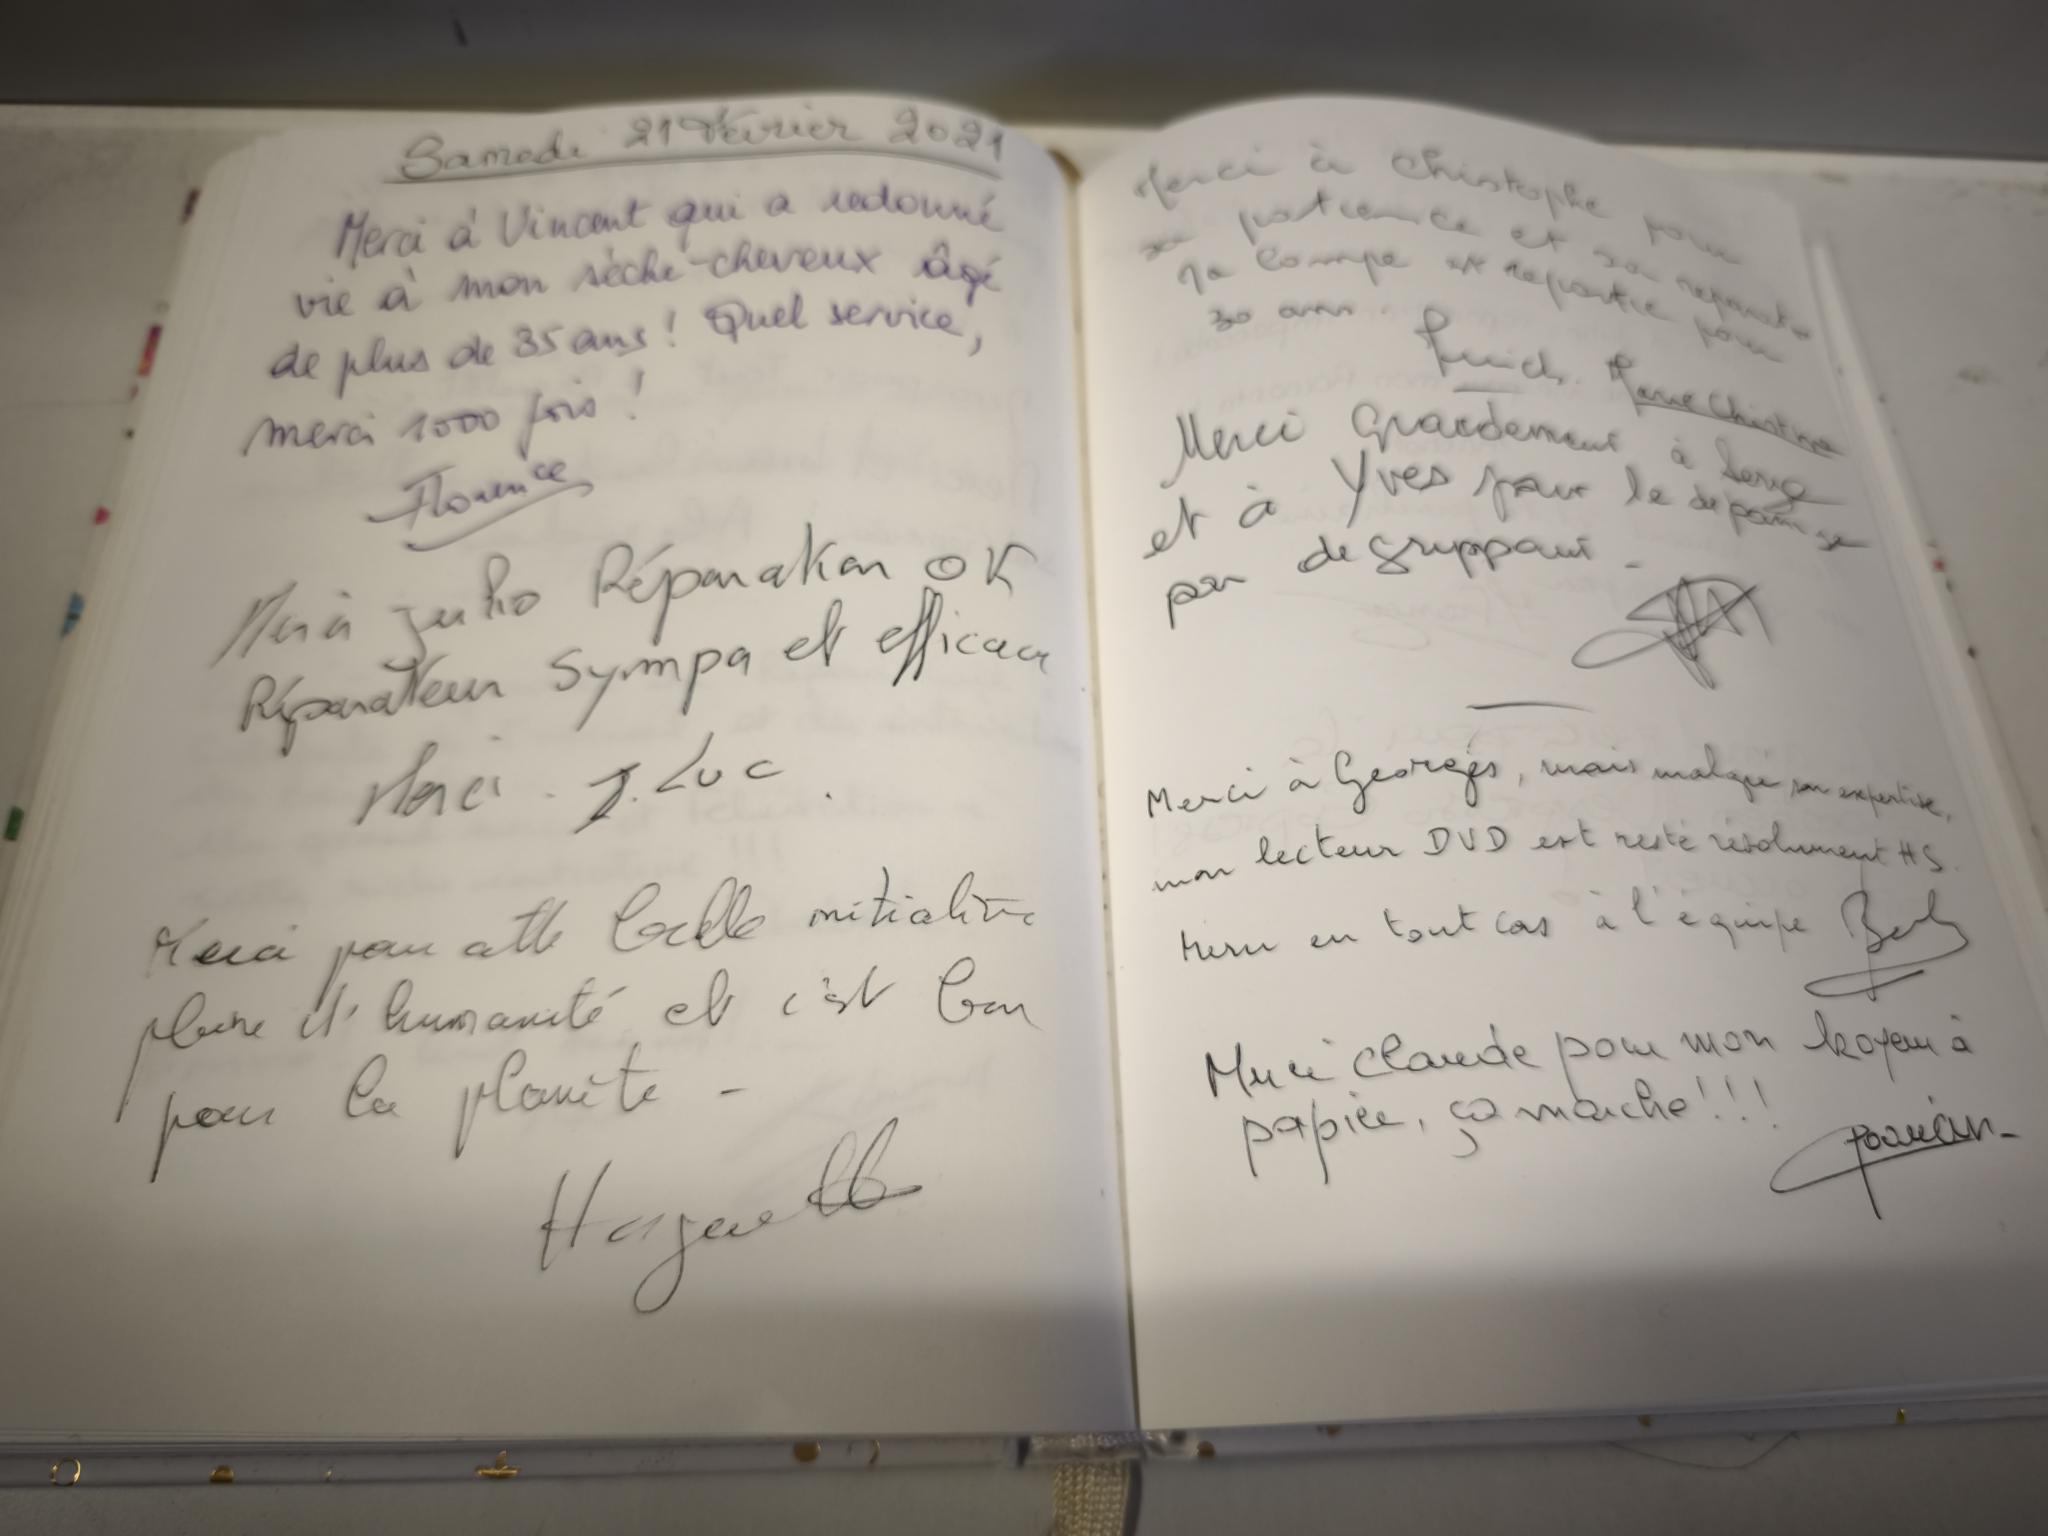 Samedi 21 Février 2021
Merci à Vincent qui a redonné
vie à mon sèche-cheveux âgé
de plus de 35 ans ! Quel service,
merci 1000 fois !
Florence
Merci Julio Réparation OK
Réparateur Sympa et efficace
Merci. J. Luc.
Merci pour cette belle initiative
pleine d'humanité et c'est bon
pour la planète -
Merci à Christophe pour
sa patience et sa réparation
la lampe est repartie pour
30 ans.
Marie Christine
Merci Grandement à Serge
et à Yves pour le dépannage
par degruppant -
Merci à Georges, mais malgré son expertise,
mon lecteur DVD est resté résolument HS.
Merci en tout cas à l'équipe
Merci Claude pour mon broyeur à
papier, ça marche !!!